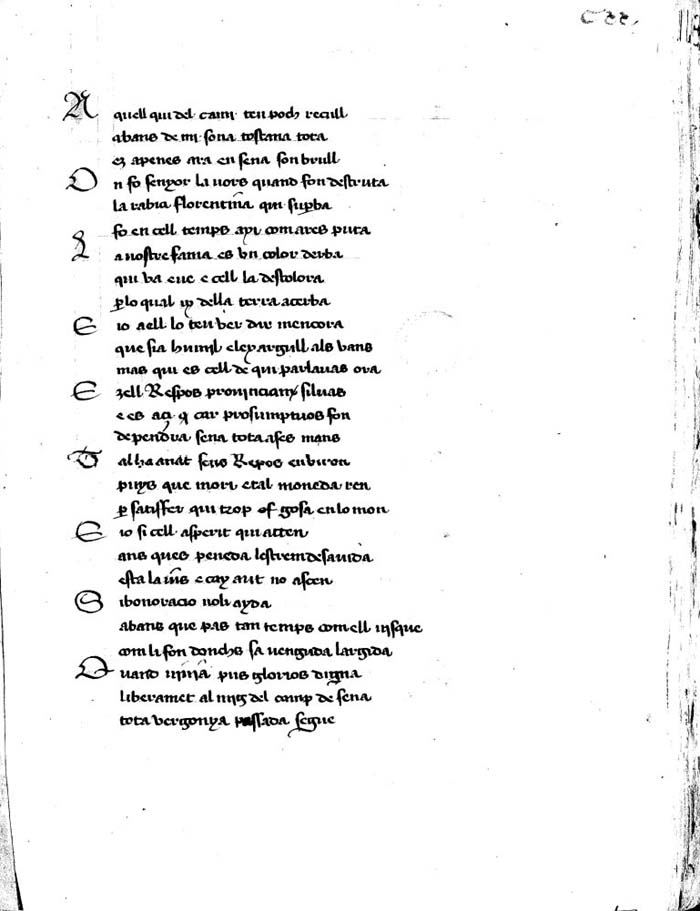 Aquell qui del cami ten poch recull
abans de mi sona toscana tota
ez apenes ara en sena son brull
On fo senyor lavors quand fon destruta
la rabia florentina qui supba
fo en cell temps axi com ares puta
La nostre fama es un color derba
qui va e ue e cell la descolora
plo qual ix della terra acerba
E io a ell lo teu ver diu mencora
que sia humil e lex argull als vans
mas qui es cell de qui parlavas ora
Ezell Respos provincianx silvas
e es aci q car prosumptuos fon
de pendra sena tota a ses mans
Tal ha anat sens Repos environ
puys que mori e tal moneda ren
p satisfer qui trop of gosa en lo mon
E io si cell asperit qui atten
ans ques peneda lestrem de sa vida
esta la e cay aut no ascen
Si bon oracio no li ayda
abans que pas tan temps com ell visque
com li fon donchs sa venguda largida
Quand vivia pus glorios digna
liberamet al mig del camp de sena
tota vergonya passada segue